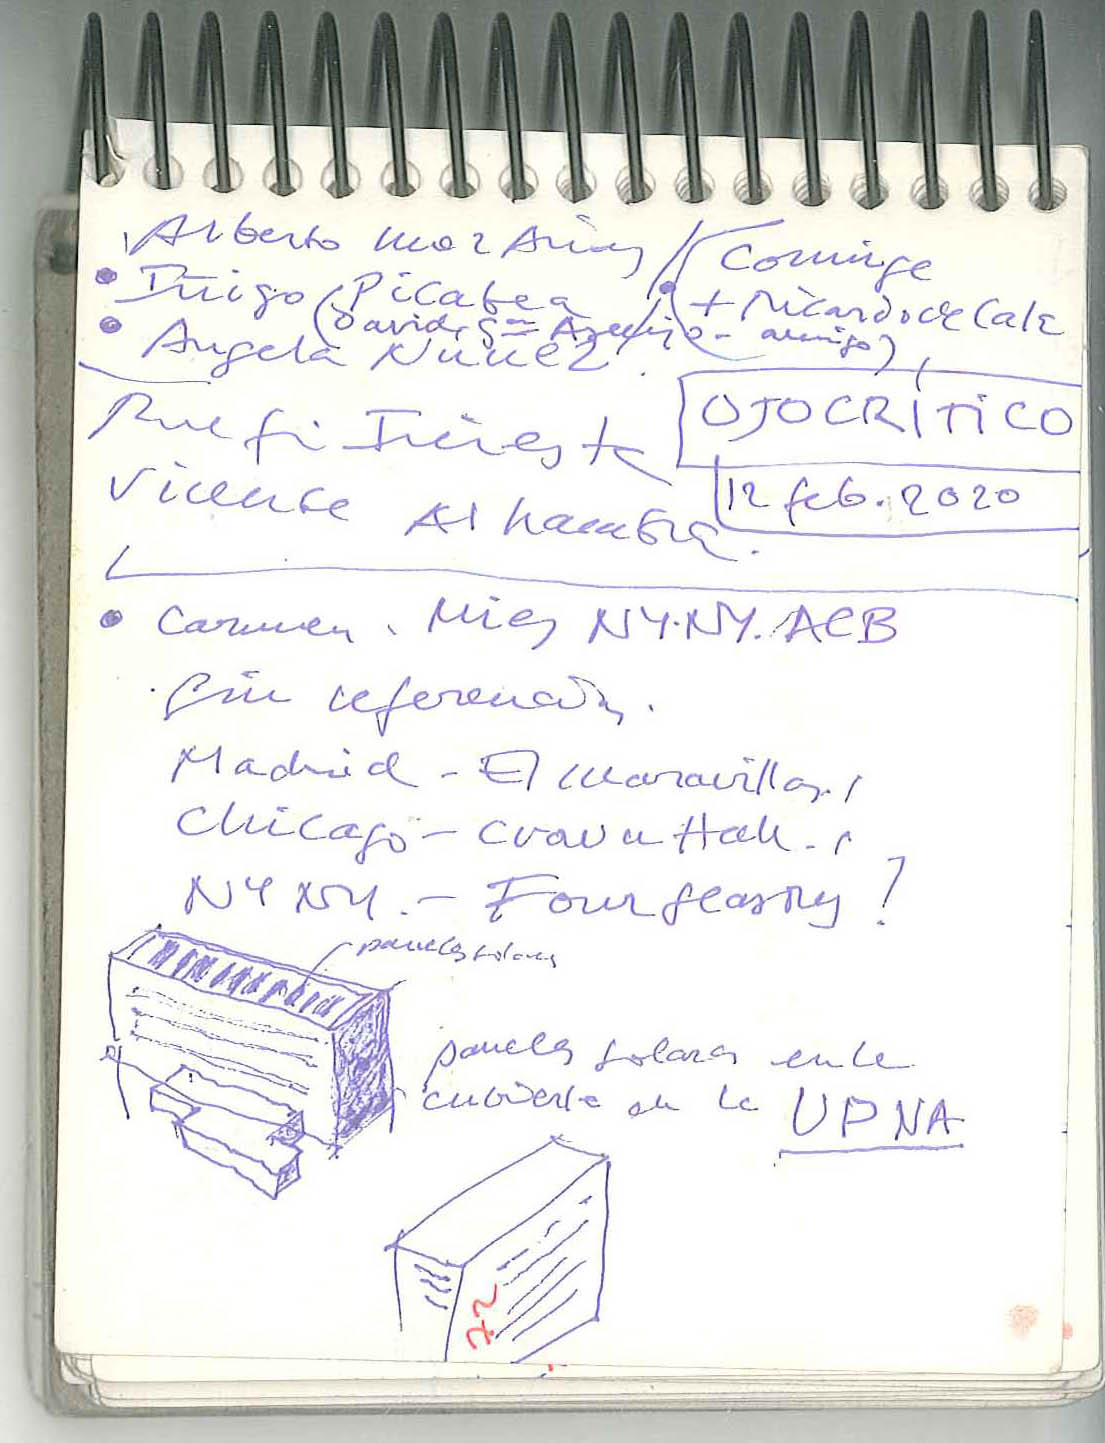 Alberto
Coninge
• Iñigo (Picabea
+ Ricardo de Cala
(David, amigo)
• Angela Nuñez.
OJOCRÍTICO
Vicente Alhambra.
12 feb. 2020
• Carmen. Mies NY.NY. ACB
Sin referencias.
Madrid - El maravillas,
Chicago - Crown Hall.
NY NY. - Four Seasons!
paneles solares
paneles solares en la
cubierta de la UPNA
72